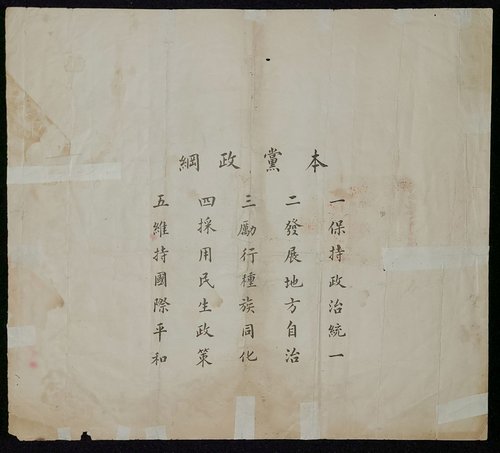 本黨政綱
一保持政治統一
二發展地方自治
三勵行種族同化
四採用民生政策
五維持國際平和